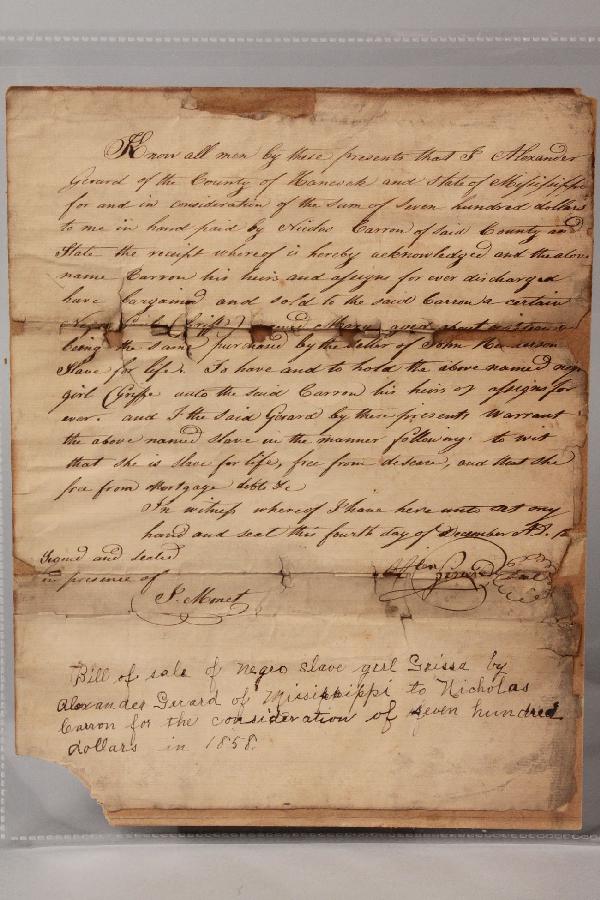 Know all men by these presents that I Alexander
Gerard of the County of Hancock and State of Mississippi
for and in consideration of the sum of seven hundred dollars
to me in hand paid by Nicolas Carron of said County and
State the receipt whereof is hereby acknowledged and the above
name Carron his heirs and assigns for ever discharged
have bargained and sold to the said Carron a certain
Negro aged about
being the same purchased by the of John
Slave for life. To have and to hold the above named
girl (Griffe unto the said Carron his heirs or assigns for
ever. and I the said Gerard by these presents Warrant
the above named slave in the manner following. to wit
that she is slave for life, free from disease, and that she
free from Mortgage debts &c
In witness whereof I have here unto set my
hand and seal this fourth day of December A.D.
Signed and sealed
in presence of
Alexr Gerard Seal
J. Monet
Bill of sale of Negro slave girl Grissa by
Alexander Gerard of Mississippi to Nicholas
Carron for the consideration of seven hundred
dollars in 1858.